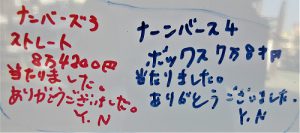 ナンバーズ3
ストレート
8万4200円
当たりました。
ありがとうございました。
Y.N
ナーンバース4
ボックス7万8千円
当たりました。
ありがとうございました.
Y.N